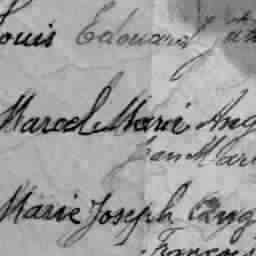 Louis Edouard
Marcel Marie Aug
Jean Mar
Marie Joseph Aug
François